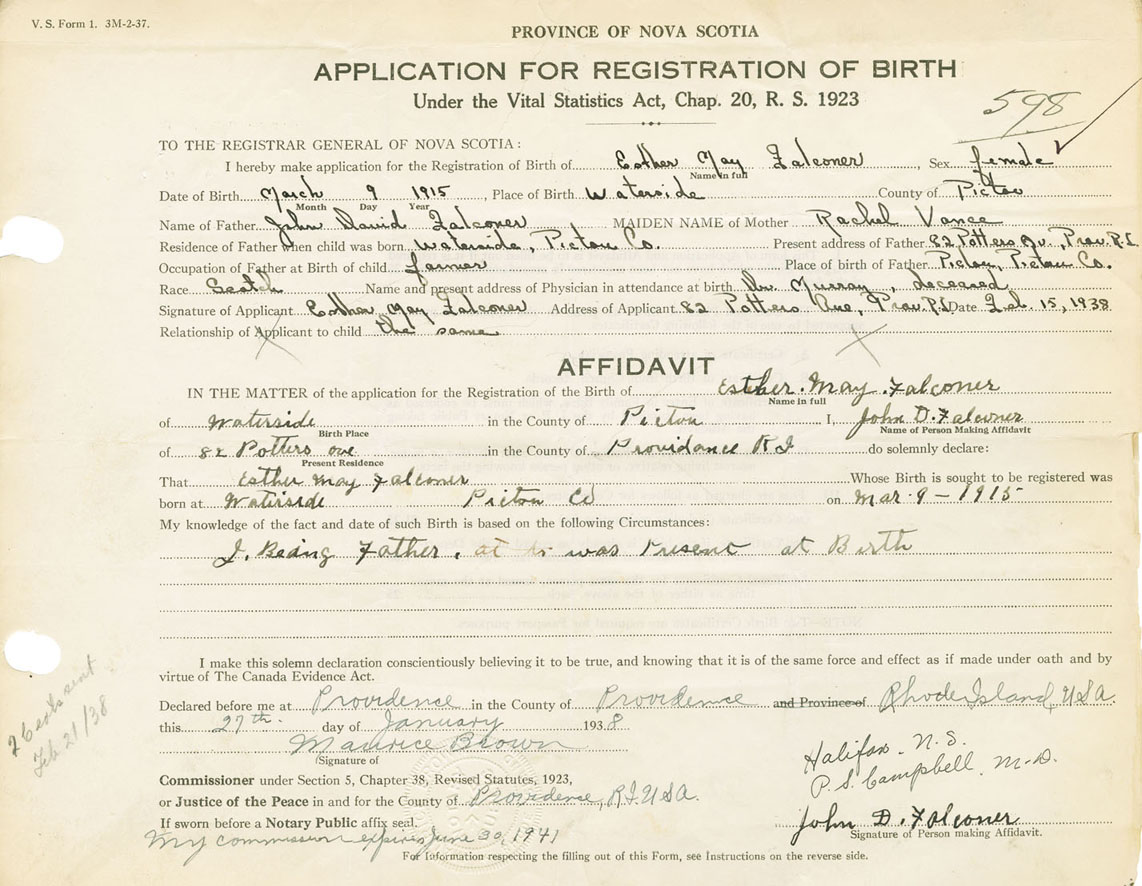 V. S. Form 1. 3M-2-37.
PROVINCE OF NOVA SCOTIA
APPLICATION FOR REGISTRATION OF BIRTH
Under the Vital Statistics Act, Chap. 20, R. S. 1923
598
TO THE REGISTRAR GENERAL OF NOVA SCOTIA:
I hereby make application for the Registration of Birth of Esther May Falconer, Sex female
Name in full
Date of Birth March 9 1915, Place of Birth Waterside County of Pictou
Month Day Year
Name of Father John David Falconer MAIDEN NAME of Mother Rachel Vance
Residence of Father when child was born Waterside, Pictou Co. Present address of Father 82 Potters Av., Prov. R.I.
Occupation of Father at Birth of child farmer Place of birth of Father Pictou, Pictou Co.
Race Scotch Name and present address of Physician in attendance at birth Dr. Murray, deceased
Signature of Applicant Esther May Falconer Address of Applicant 82 Potters Ave, Prov. R.I. Date Feb. 15, 1938
Relationship of Applicant to child the same
AFFIDAVIT
IN THE MATTER of the application for the Registration of the Birth of Esther May Falconer
Name in full
of Waterside in the County of Pictou I, John D. Falconer
Birth Place Name of Person Making Affidavit
of 82 Potters ave in the County of Providance R I do solemnly declare:
Present Residence
That Esther May Falconer Whose Birth is sought to be registered was
born at Waterside Pictou Co on Mar. 9 - 1915
My knowledge of the fact and date of such Birth is based on the following Circumstances:
I. Being Father, at was Present at Birth
I make this solemn declaration conscientiously believing it to be true, and knowing that it is of the same force and effect as if made under oath and by
virtue of The Canada Evidence Act.
Declared before me at Providence in the County of Providence and Province of Rhode Island, USA.
this 27th day of January 1938
Maurice Brown
Signature of
Halifax. N.S.
P.S. Campbell, M-D.
Commissioner under Section 5, Chapter 38, Revised Statutes, 1923,
or Justice of the Peace in and for the County of Providence, R.I. USA.
If sworn before a Notary Public affix seal.
John D. Falconer
My commission expires June 30, 1941
Signature of Person making Affidavit.
For Information respecting the filling out of this Form, see Instructions on the reverse side.
sent
Feb 21/38